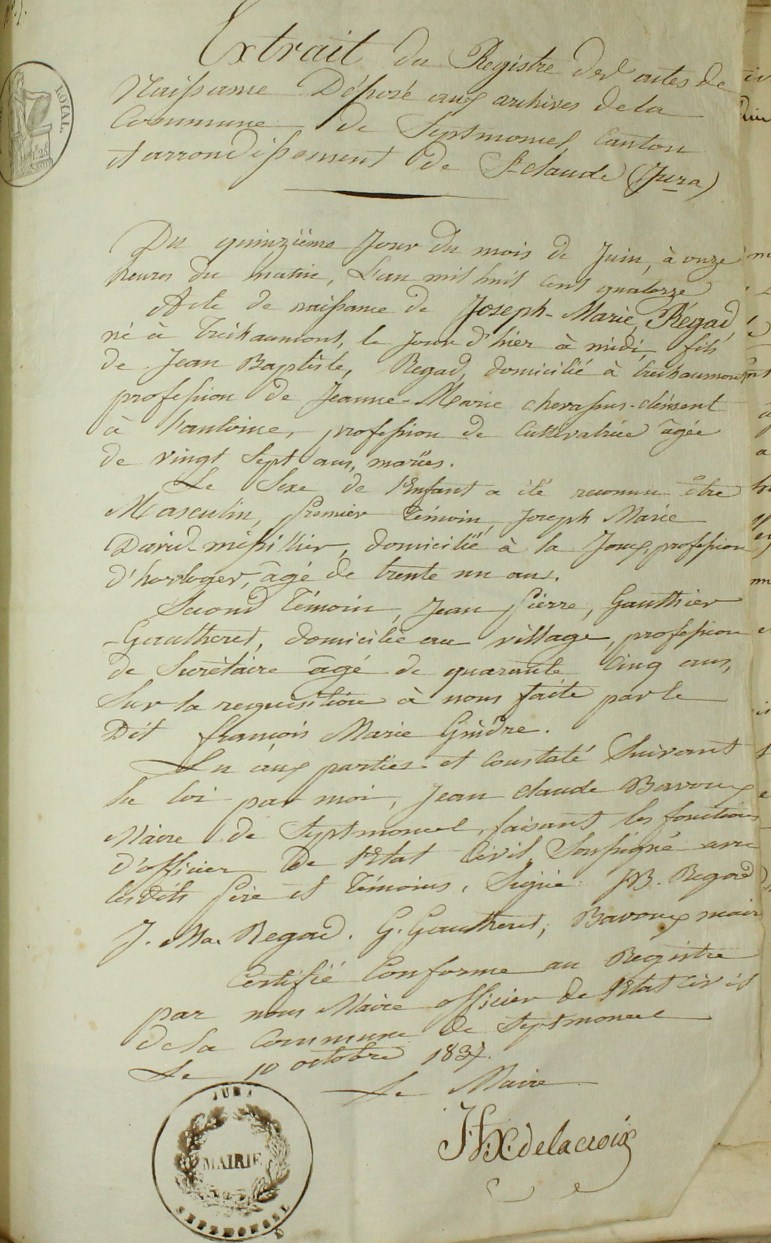 ROYAL.
Extrait du Registre des actes de
Naissance Déposé aux archives de la
Commune de Septmoncel, Canton
et arrondissement de St Claude (Jura)
Du quinzième Jour du mois de Juin, à onze
heures du matin, L'an mil huit cent quatorze
Acte de naissance de Joseph-Marie, Régad,
né à Trechaumont, le Jour d'hier à midi, fils
de Jean Baptiste, Regad, domicilié à Trechaumont
profession de Jeanne-Marie chevassus-clément
à l'antoine, profession de Cultivatrice âgée
de vingt Sept ans, mariés.
Le Sexe de l'Enfant a été reconnu être
Masculin, premier Témoin, Joseph Marie
David missillier, domicilié à la Joux, profession
d'horloger, âgé de trente un ans.
Second Témoin, Jean Pierre, Gauthier
Gautheret, domicilié au village, profession
de Secrétaire âgé de quarante Cinq ans,
Sur la requisition à nous faite par le
Dit françois Marie Grîdre.
Lu aux parties et constaté Suivant
la loi par moi, Jean claude Bavoux
Maire de Septmoncel, faisant les fonctions
d'officier De l'Etat Civil Soussigné avec
lesdits père et Témoins. Signé: JB. Regad
J. Ma. Regad. G. Gautheret, Bavoux maire
Certifié Conforme au Registre
par nous Maire officier de l'Etat civil
de la Commune de Septmoncel
Le 10 octobre 1837.
Le Maire
JFX. delacroix
JURA
MAIRIE
SEPTMONCEL